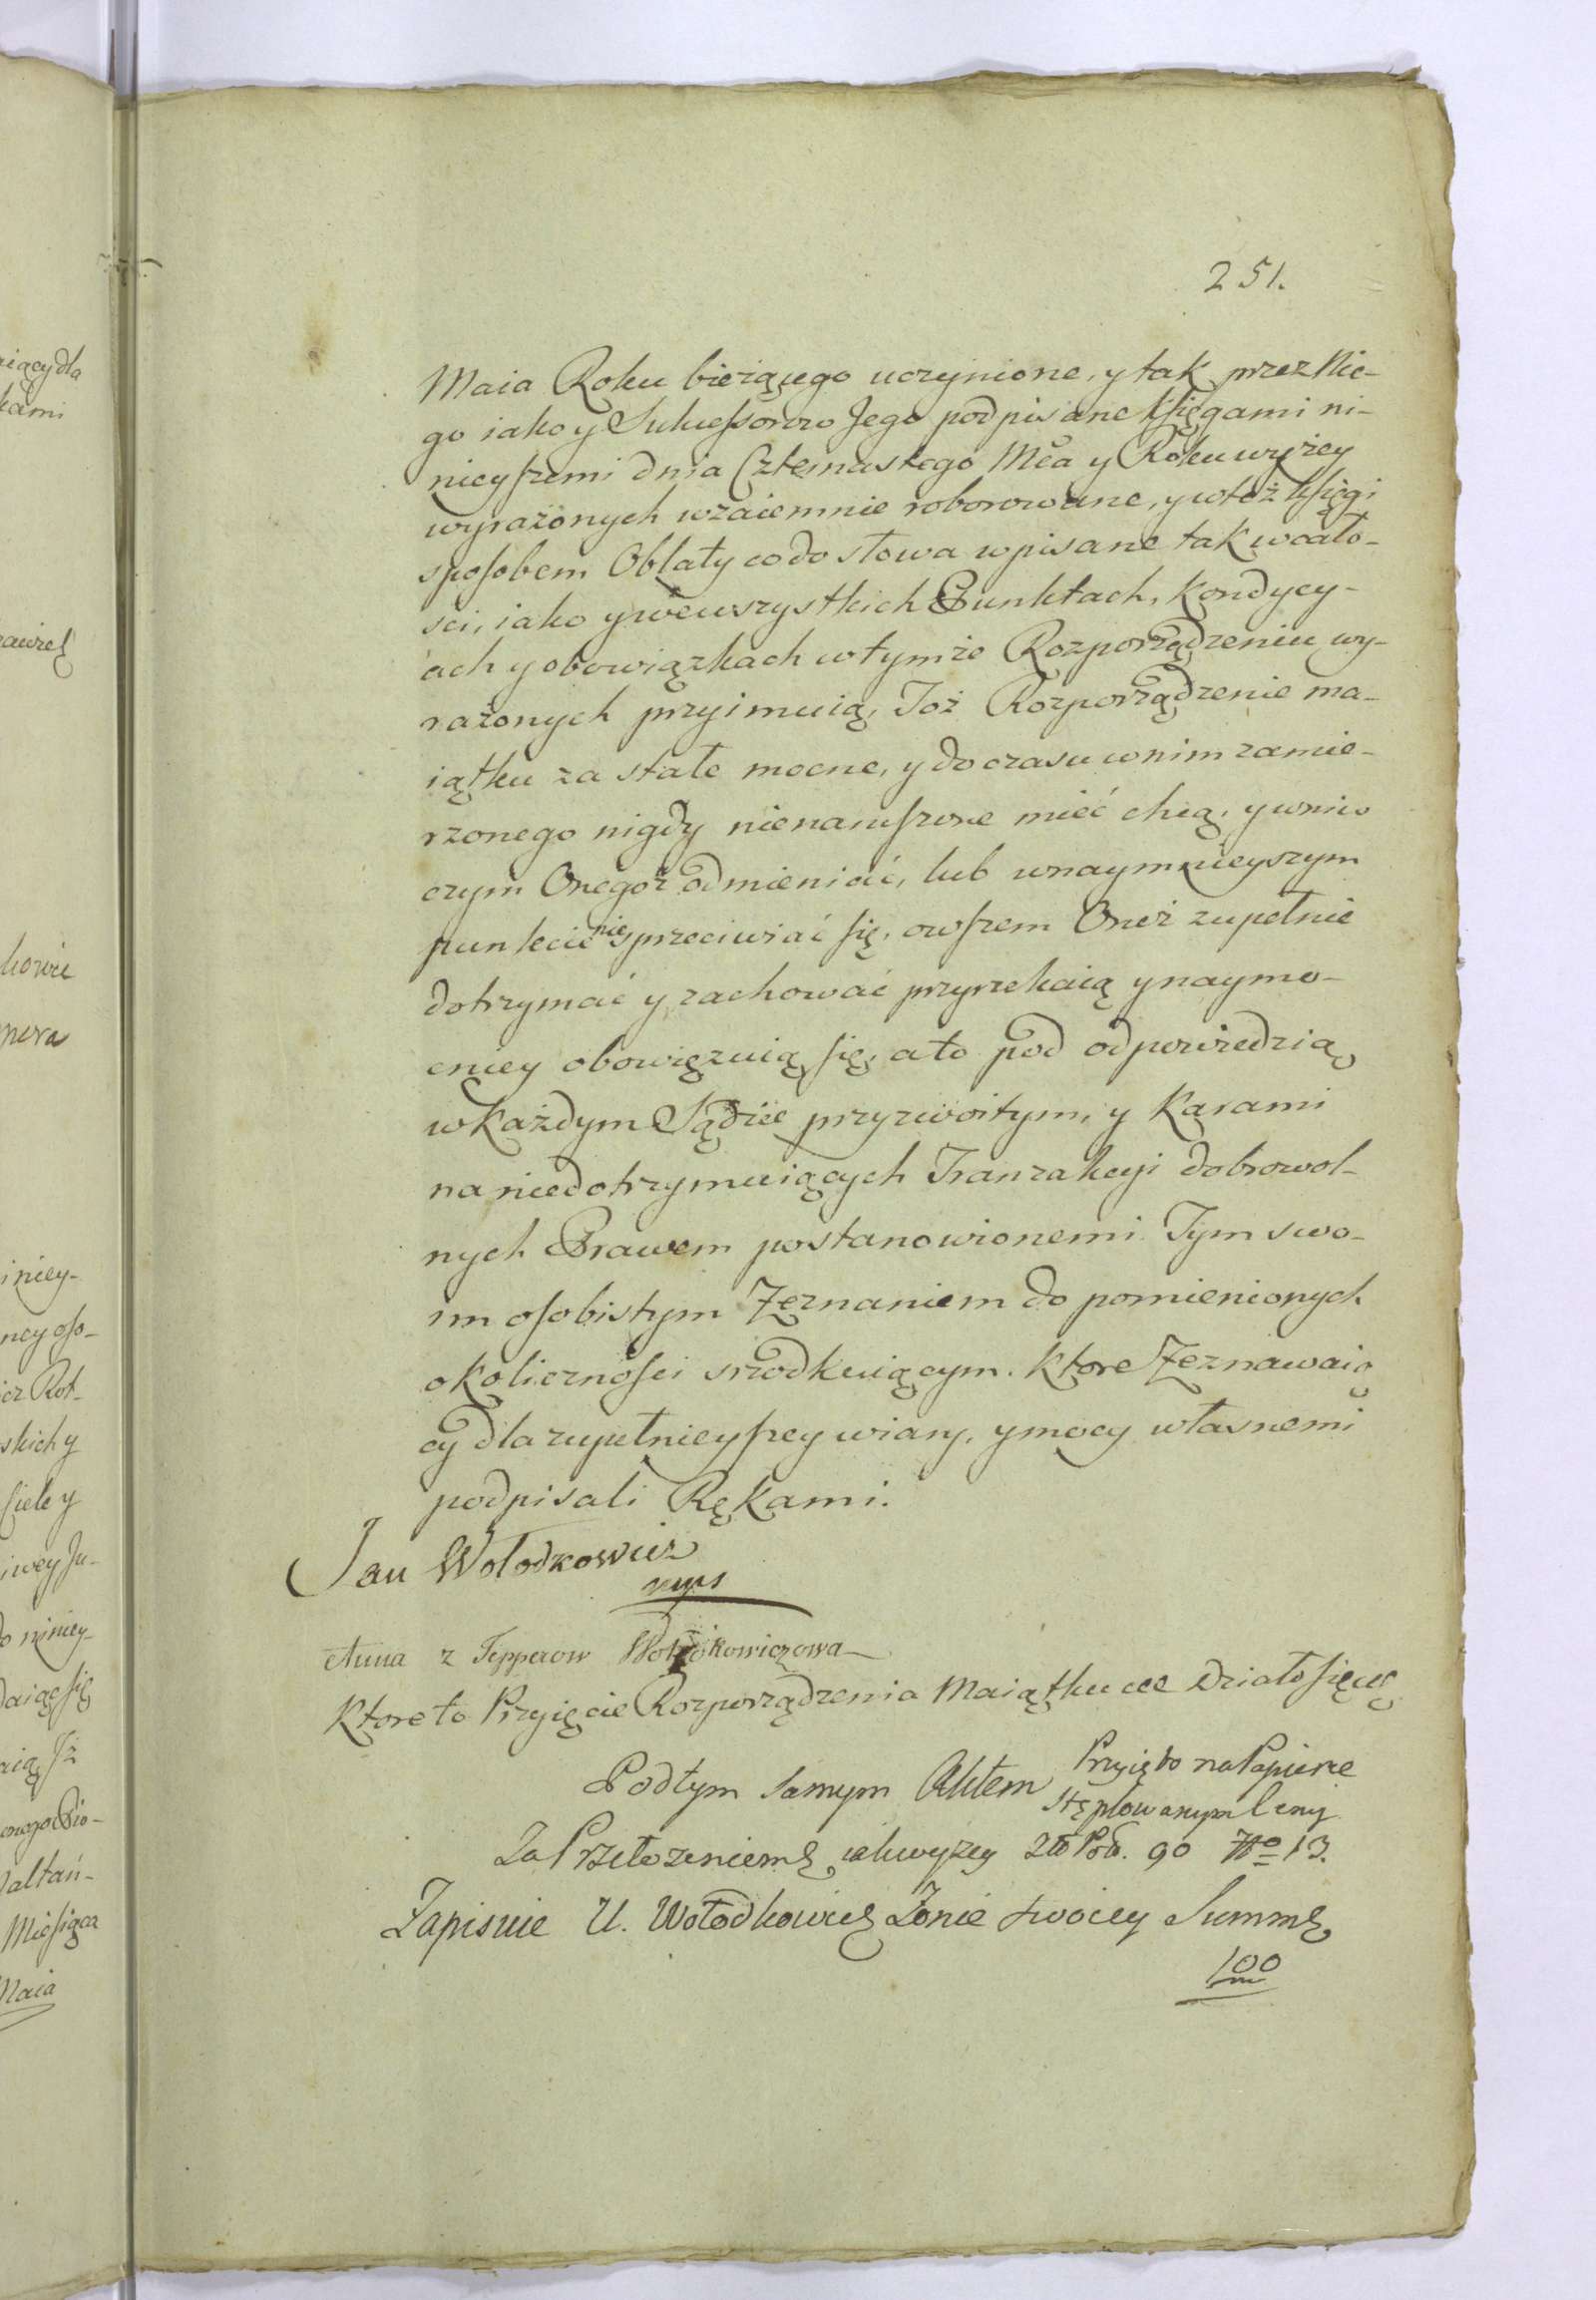 251.
Maia Roku bieżącego uczynione, y tak przez Nie-
go iako y Sukcessorow Jego podpisane Xsięgami ni-
nieyszemi dnia Czternastego Mca y Roku wyżey
wyrażonych wzaiemnie roborowane, y wteż Xsięgi
sposobem Oblaty co do słowa wpisane tak w cało-
sci, iako y we wszystkich Punktach, Kondycy-
ach y obowiązkach w tymże Rozporządzeniu wy-
rażonych przyimuią, Toż Rozporządzenie ma-
iątku za stałe mocne, y do czasu w nim zamie-
rzonego nigdy nienaruszone mieć chcą, y w ni w
czym Onegoż odmieniać, lub w naymnieyszym
punkcie nie sprzeciwiać się, owszem Oneż zupełnie
dotrzymać y zachować przyrzekaią y naymo-
cniey obowięzuią się, a to pod odpowiedzią
w Każdym Sądzie przyzwoitym, y Karami
na niedotrzymuiących Tranzakcyi dobrowol-
nych Prawem postanowionemi Tym swo-
im osobistym Zeznaniem do pomienionych
okoliczności srzodkuiącym. Ktore Zeznawaią
cy dla zupełnieyszey wiary, y mocy własnemi
podpisali Rękami.
Jan Wołodkowicz
mps
Anna z Tepperow Wołodkowiczowa
Ktore to Przyięcie Rozporządzenia Maiątku etc Działo się etc
Pod tym samym Aktem
Przyięto na Papierze
Stęplowanym Ceny
Za Przełożeniem etc iak wyżey Zło Pol. 90 No 13.
Zapisuie U. Wołodkowicz Żonie swoiey Summę
100
m
iący dla
kami
kowie
pera
iniey-
ney oso-
icz Rot-
skich y
siele y
iwey Ju-
o niniey-
daiąc się
aią Jż
onego Pio-
altań-
Miesiąca
Maia